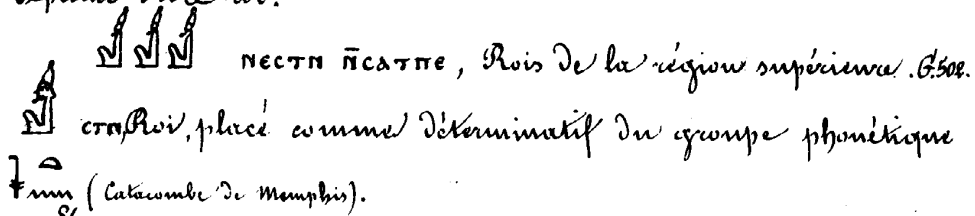 ⲛⲉⲥⲧⲛ ⲛ̄ⲥⲁⲧⲡⲉ, Rois de la région supérieure. G. 502.
ⲥⲧⲛ, Roi, placé comme déterminatif du groupe phonétique
(Catacombe de Memphis).